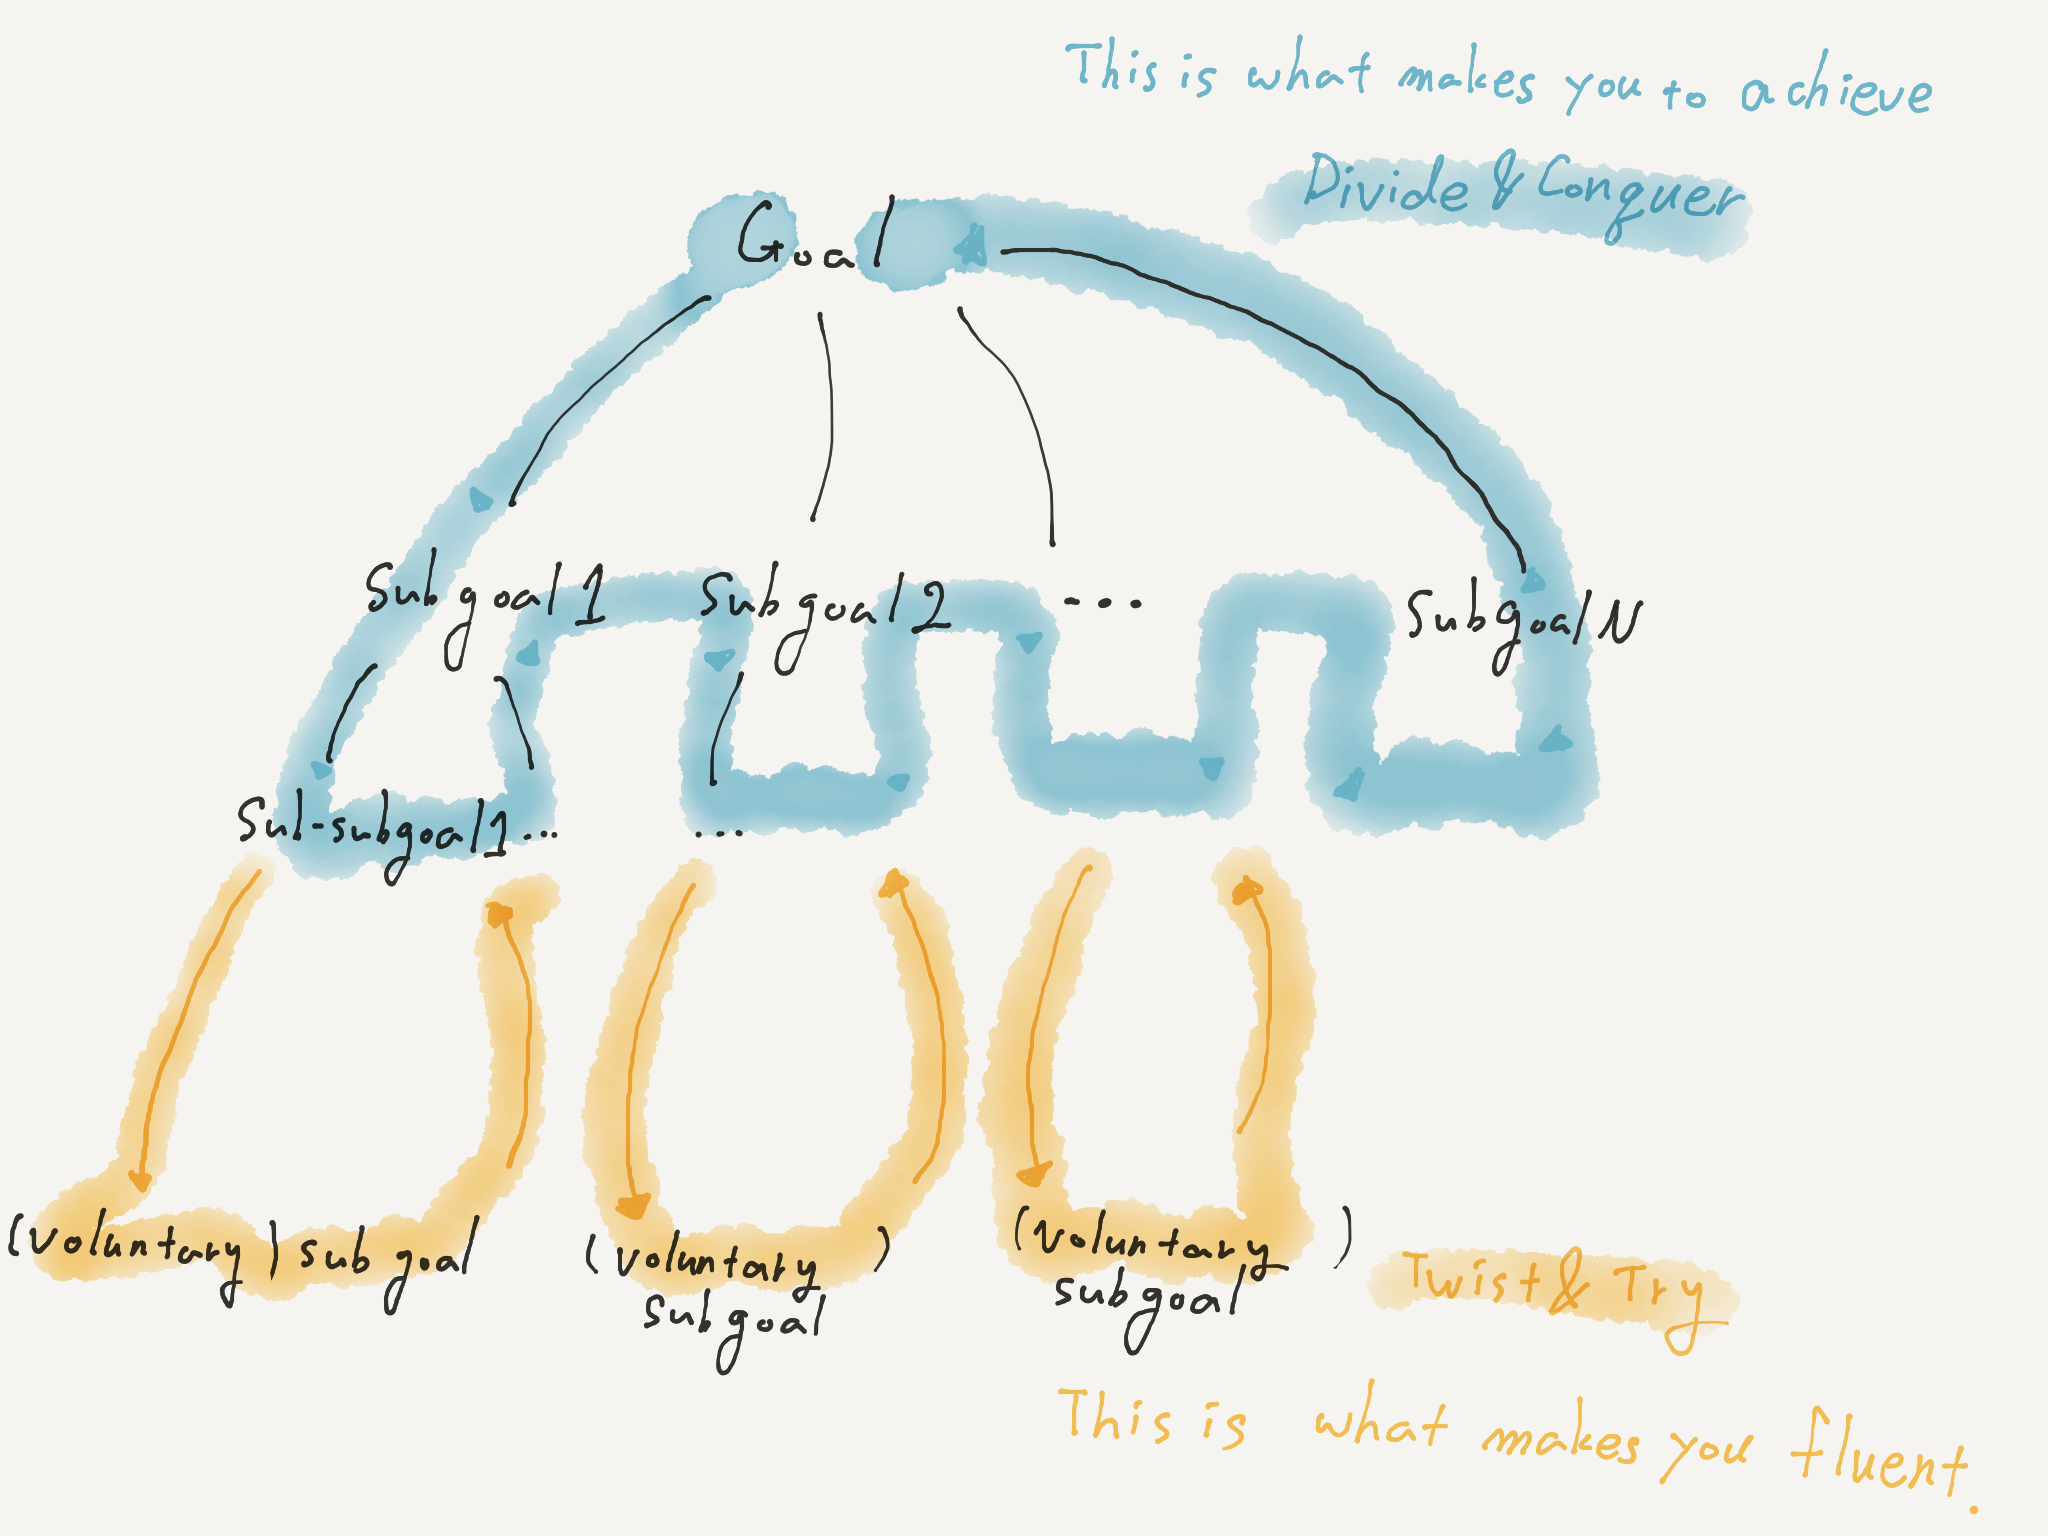 This is what makes you to achieve
Divide & Conquer
Goal
Subgoal 1
Subgoal 2
...
Subgoal N
Sub-subgoal 1...
...
(Voluntary) subgoal
(Voluntary
subgoal
)
(Voluntary
subgoal
)
Twist & Try
This is what makes you fluent.